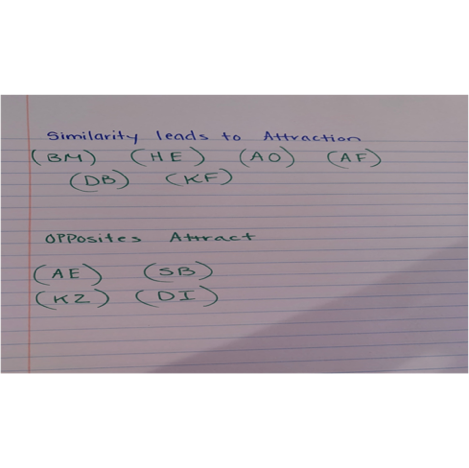 Similarity leads to Attraction
(BM) (HE) (AO) (AF)
(DB) (KF)
OPPosites Attract
(AE) (SB)
(KZ) (DI)